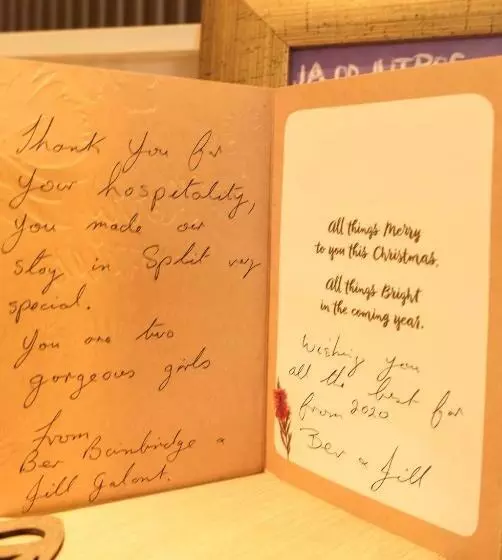 Thank you for
your hospetality,
you made our
stay in Split very
special.
You are two
gorgeous girls
From
Bev Bainbridge &
Jill Galant.
All things Merry
to you this Christmas.
All things Bright
in the coming year.
Wishing you
all the best for
from 2020
Bev & Jill